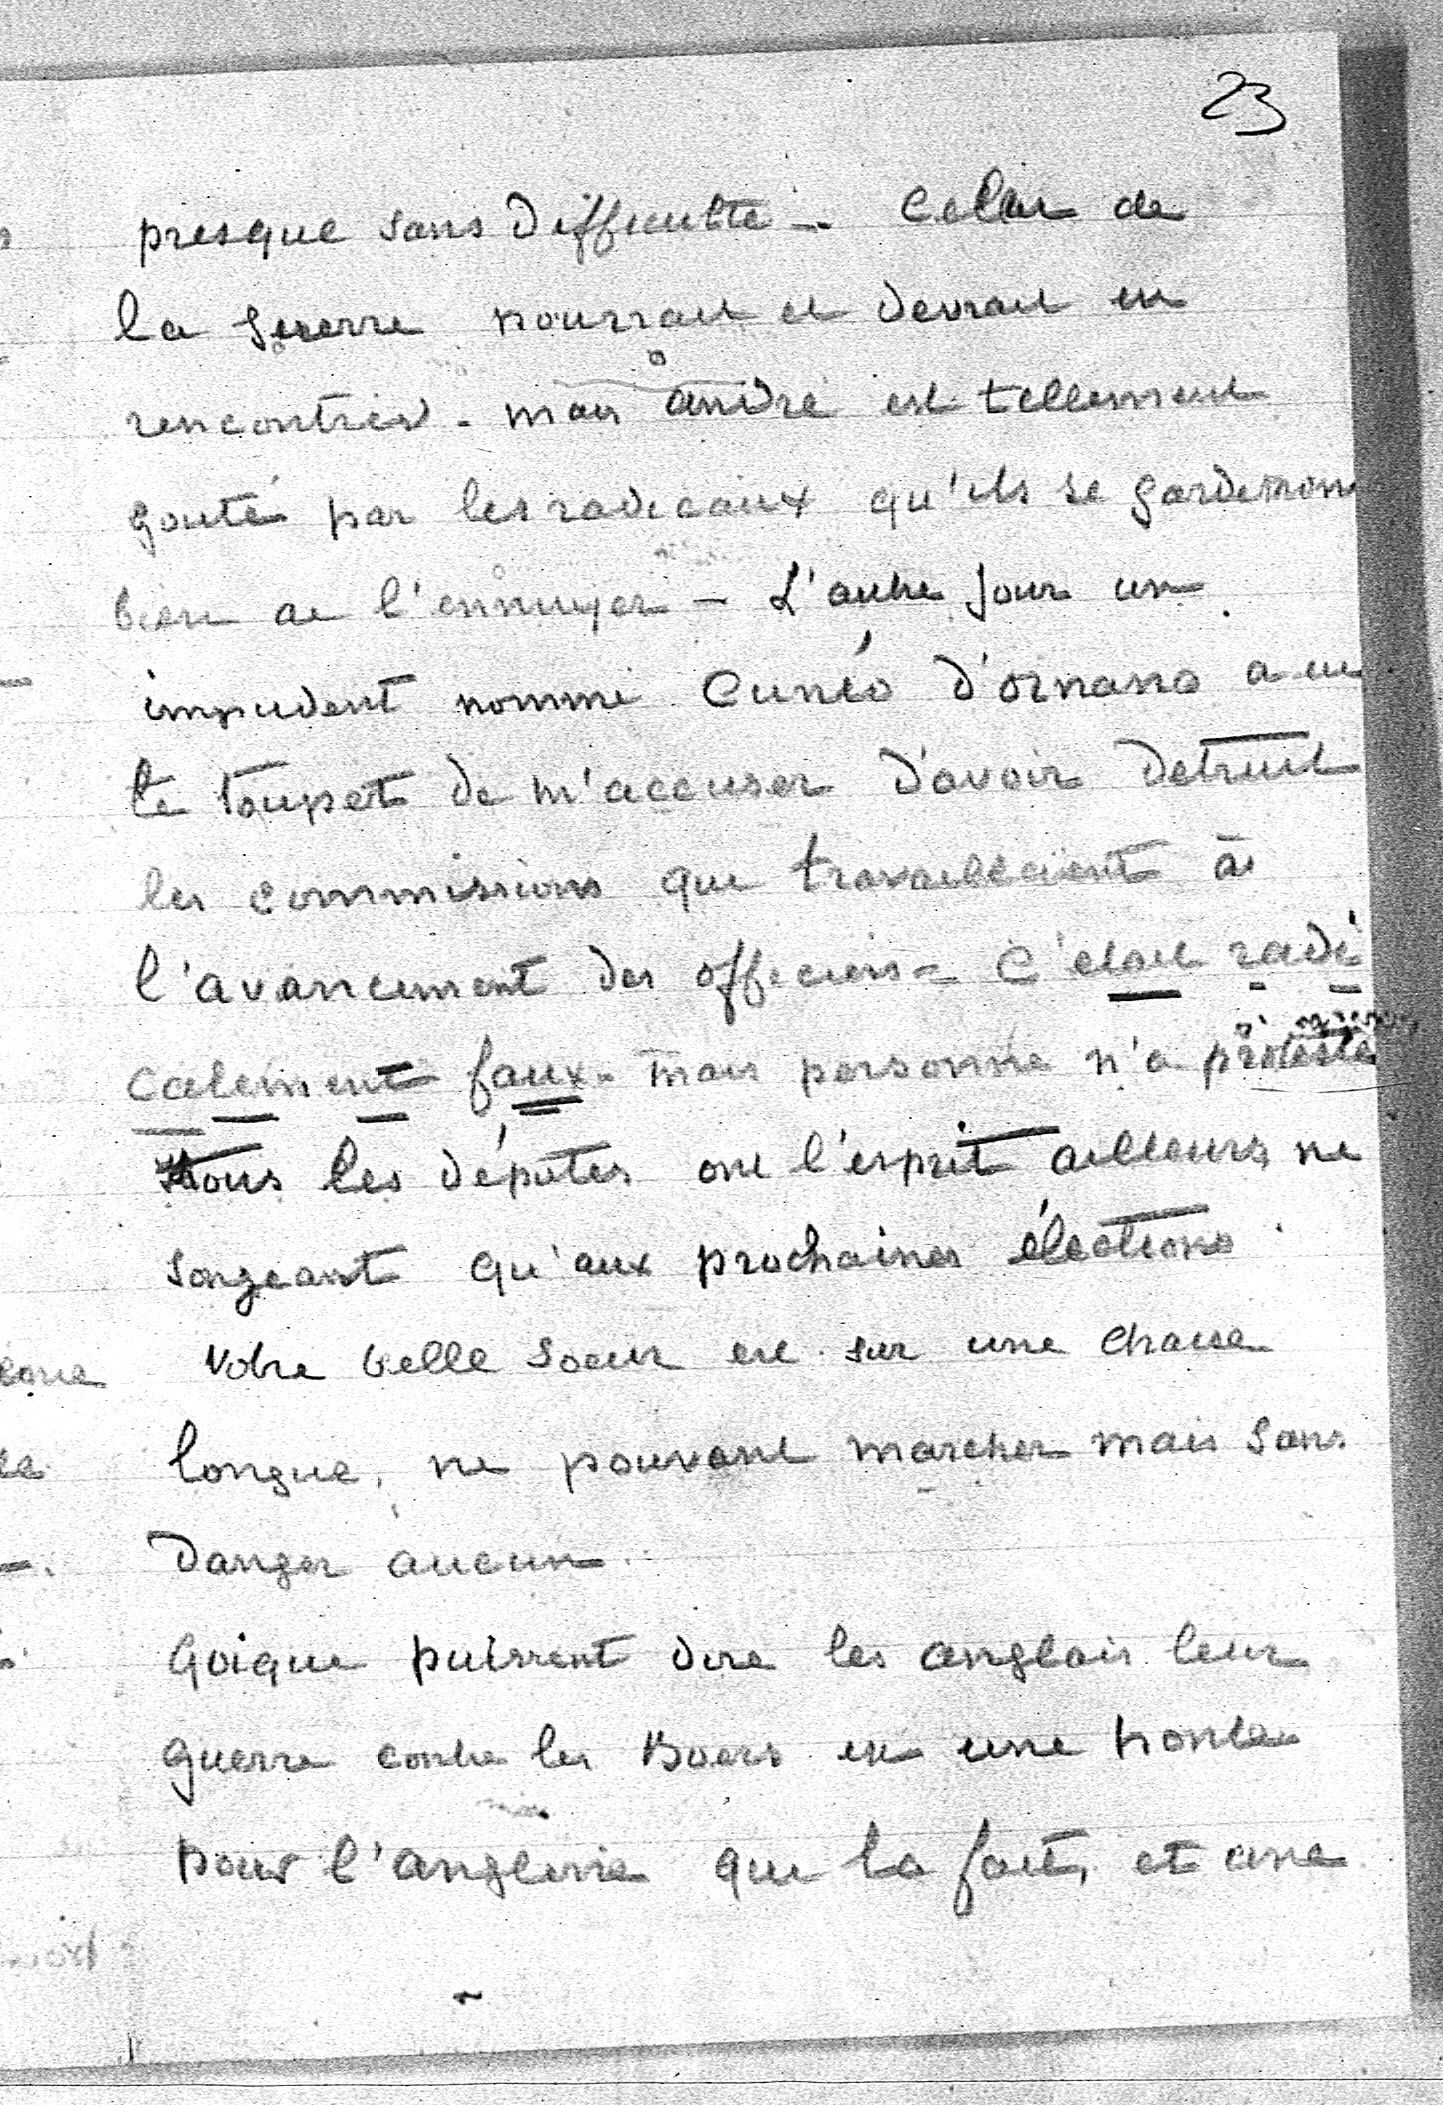 23
presque sans difficulté - Celui de
la guerre pourrait et devrait en
rencontrer. mais andré est tellement
gouté par les radicaux qu'ils se garderont
bien de l'ennuyer - L'autre jour un
impudent nommé Cunéo d'ornano a eu
le toupet de m'accuser d'avoir detruit
les commissions qui travaillaient à
l'avancement des officiers = C'etait radi
calement faux. mais personne n'a protesté
tous les députés ont l'esprit ailleurs ne
songeant qu'aux prochaines élections
Votre belle soeur est sur une chaise
longue, ne pouvant marcher mais sans
danger aucun
Qoique puissent dire les anglais leur
guerre contre les Boers est une honte
pour l'angleterre qui la fait, et une